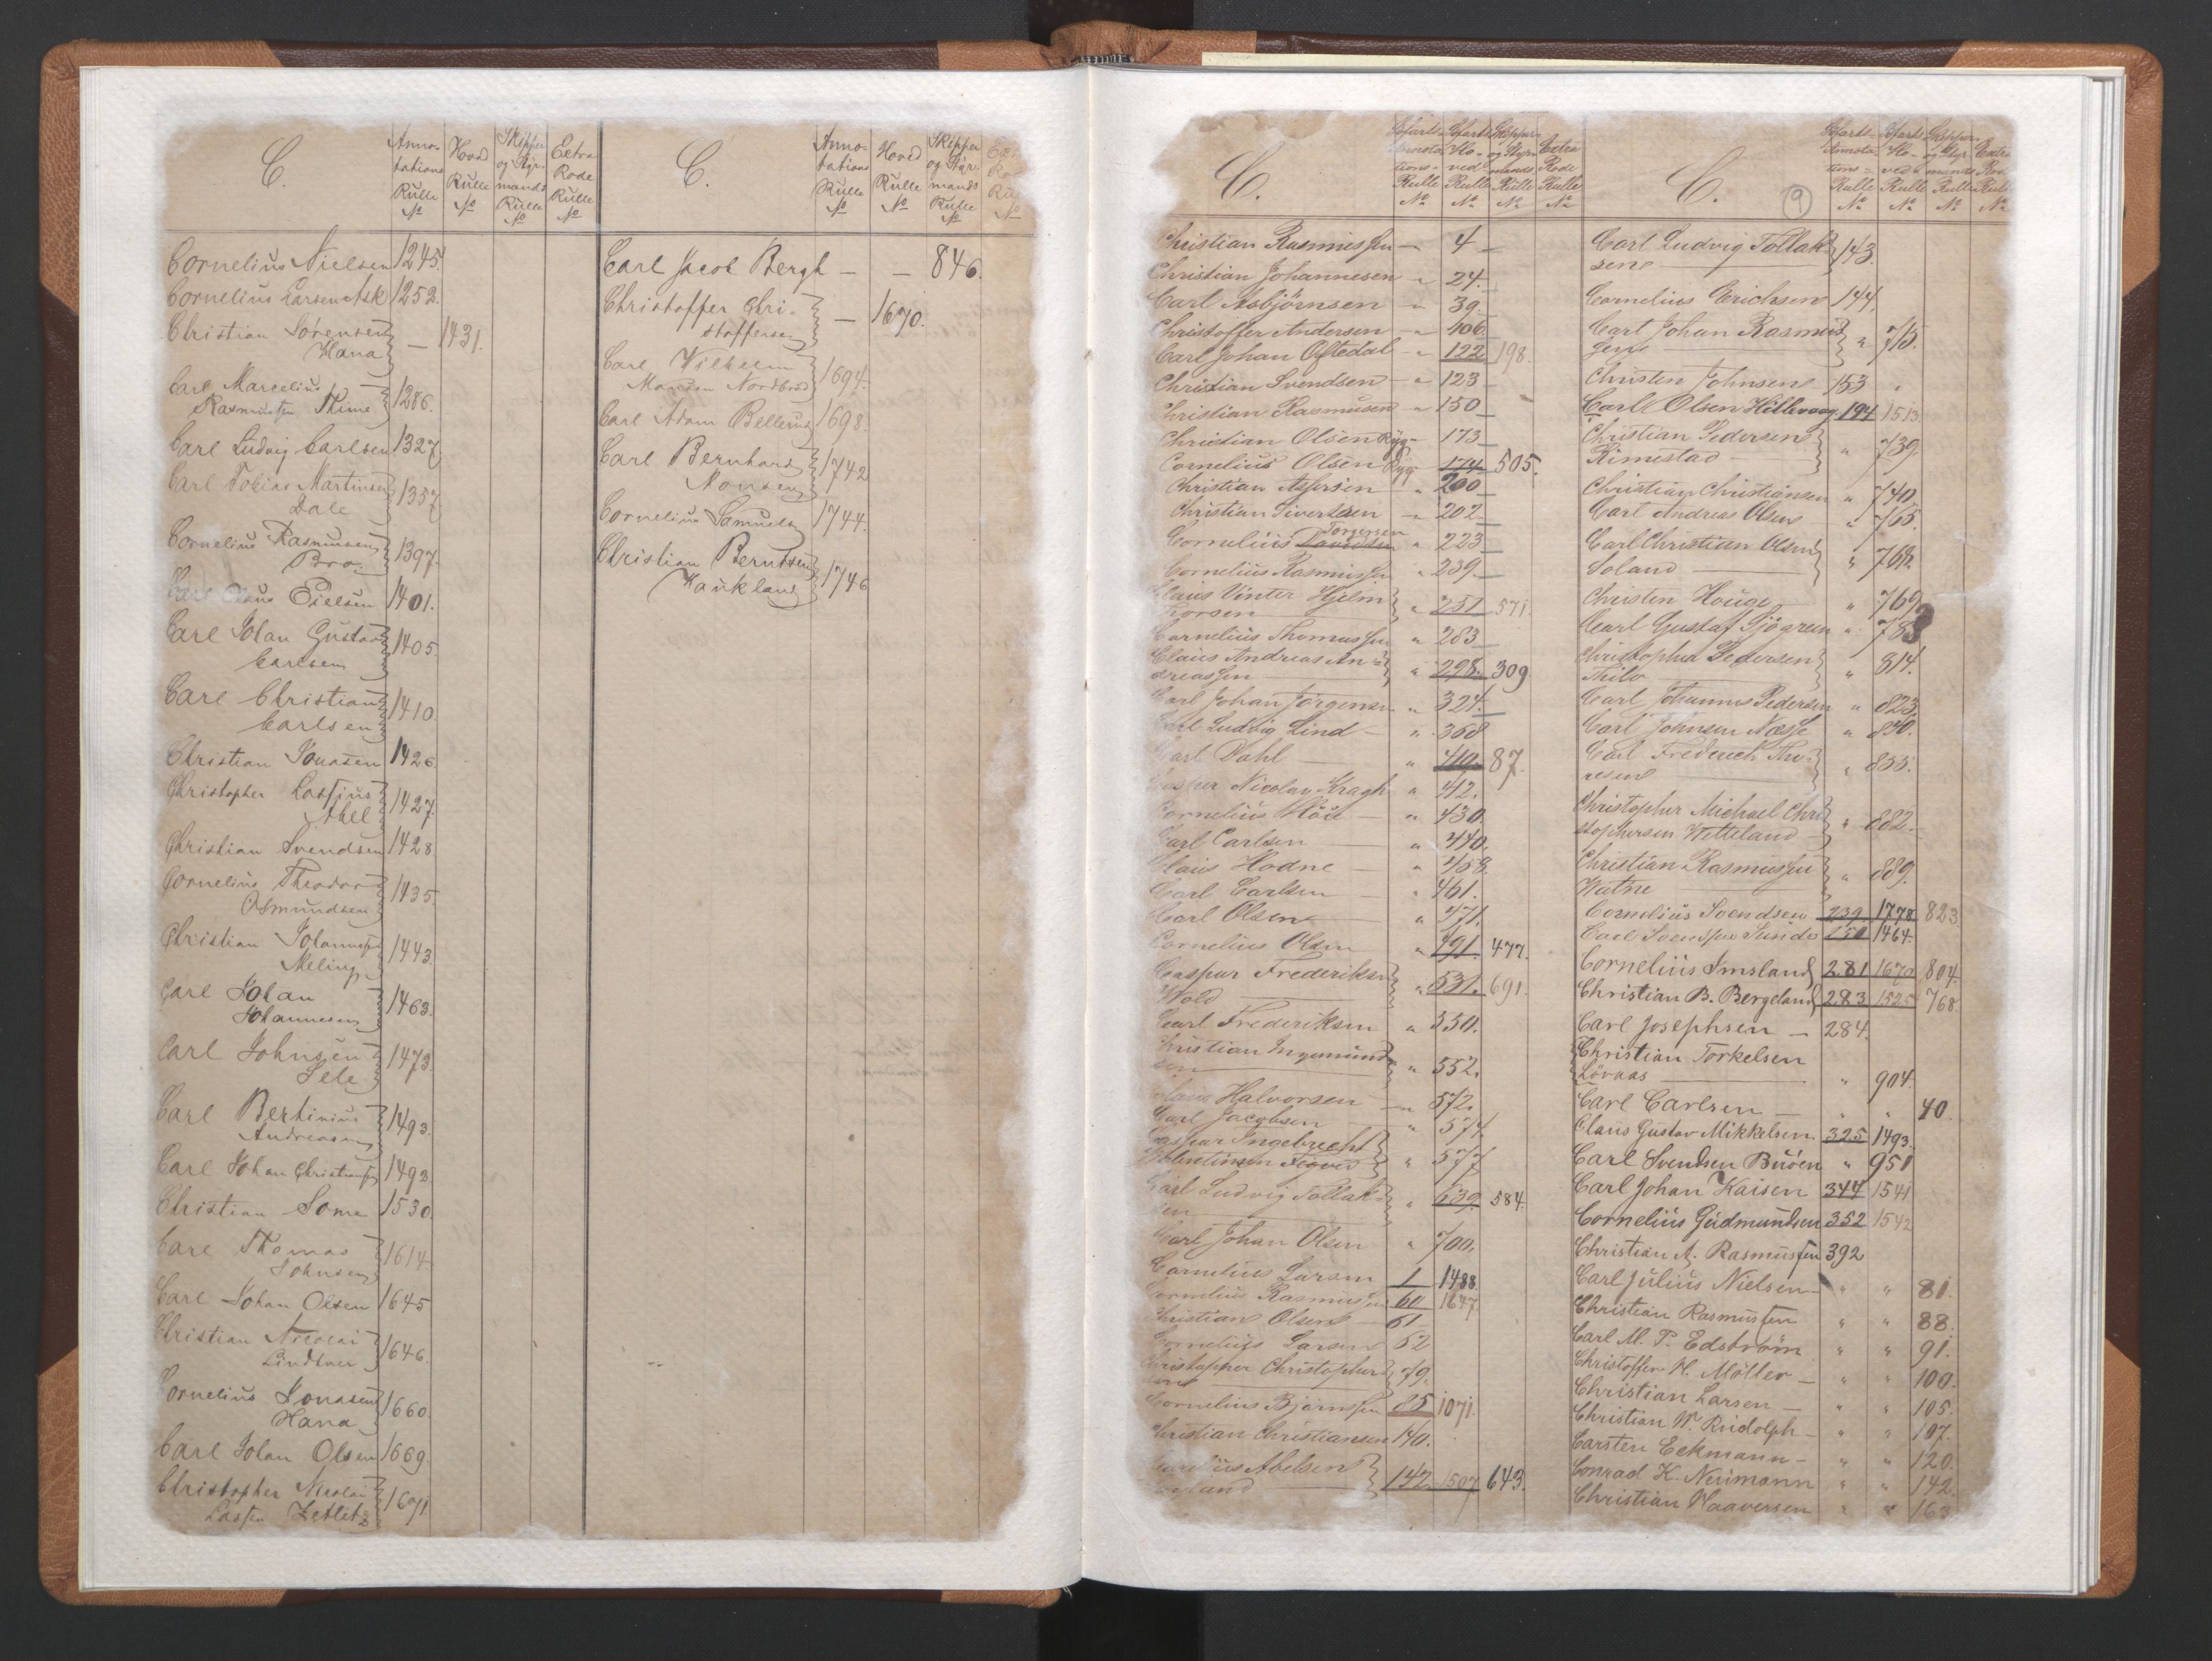 C.
Anno-
tations
Rulle
No
Hoved
Rulle
No
Skipper
og Styr-
mands
Rulle
No
Extra
Rode
Rulle
No
Cornelius Nielsen 1245.
Cornelius Larsen Ask 1252.
Christian Sørensen
Hana — 1431.
Carl Marcelius
Rasmussen Thime 1286.
Carl Ludvig Carlsen 1327
Carl Tobias Martinsen
Dale 1357
Cornelius Rasmussen
Bro 1397.
Carl Claus Eielsen 1401.
Carl Johan Gustav
Carlsen 1405.
Carl Christian
Carlsen 1410.
Christian Jonasen 1426.
Christopher Lassius
Abel 1427.
Christian Svendsen 1428.
Cornelius Theodor
Osmundsen 1435.
Christian Johannessen
Meling 1443.
Carl Johan
Johannesen 1463.
Carl Johnsen
Sele 1473.
Carl Bertinius
Andreasen 1493.
Carl Johan Christiansen 1493.
Christian Some 1530.
Carl Thomas
Johnsen 1614
Carl Johan Olsen 1645
Christian Nicolai
Lindtner 1646.
Cornelius Jonasen
Hana 1660.
Carl Johan Olsen 1669.
Christopher Nicolai
Lassen Zetlitz 1691.
C.
Anno-
tations
Rulle
No
Hoved
Rulle
No
Skipper
og Styr-
mands
Rulle
No
Carl Jacob Bergh — — 846.
Christoffer Chri-
stoffersen — 1670.
Carl Vilhelm
Monsen Nordbrod 1694.
Carl Adam Bellerud 1698.
Carl Bernhard
Monsen 1742
Cornelius Samuels 1744.
Christian Berntsen
Haukland 1746
C.
Søfarts-
Annota-
tions-
Rulle
No
Søfarts
Ho-
ved-
Rulle
No
Skipper-
og Styr-
mands
Rulle
No
Extra
Rode
Rulle
No
Christian Rasmussen — 4 —
Christian Johannesen „ 24.
Carl Asbjørnsen „ 39.
Christoffer Andersen „ 106.
Carl Johan Oftedal „ 122 198.
Christian Svendsen „ 123
Christian Rasmusen „ 150
Christian Olsen Ryg „ 173
Cornelius Olsen Ryg 174 505.
Christian Aspersen „ 200
Christian Sivertsen „ 202
Torgersen
Cornelius Davidsen „ 223
Cornelius Rasmussen „ 239.
Claus Vinter Hjelm
Torsen „ 251 571.
Cornelius Thomassen „ 283
Claus Andreas An-
dreassen „ 298. 309
Carl Johan Jörgensen „ 324.
Carl Ludvig Lind „ 368
Carl Dahl „ 410. 87.
Casper Nicolay Kragh „ 412.
Cornelius „ 430.
Carl Carlsen „ 440.
Claus Hodne „ 458.
Carl Carlsen „ 461.
Carl Olsen „ 471.
Cornelius Olsen „ 491. 477.
Caspar Frederiksen
Wold „ 531. 691.
Carl Frederiksen „ 550.
Christian Ingemund-
sen „ 552.
Claus Halvorsen „ 572.
Carl Jacobsen „ 574.
Caspar Ingebrecht
Valentinsen „ 577
Carl Ludvig Tollak-
sen „ 639. 584.
Carl Johan Olsen „ 700.
Cornelius Larsen 1 1488.
Cornelius Rasmussen 60 1647.
Christian Olsen 61
Cornelius Larsen 62
Christopher Christopher-
sen 79.
Cornelius Bjørnsen 85 1071.
Christian Christiansen 140.
Cornelius Abelsen 142. 1507 643.
C. 9
Søfarts-
Annota-
tions-
Rulle
No
Søfarts
Ho-
ved-
Rulle
No
Skipper
og Styr-
mands
Rulle
No
Extra
Rode
Rulle
No
Carl Ludvig Tollak-
sen 143.
Cornelius Erichsen 144.
Carl Johan Rasmus-
sen „ 715.
Christen Johnsen 153 „
Carl Olsen Hillevaag 194 1513
Christian Pedersen
Rimestad „ 739.
Christian Christiansen „ 740.
Carl Andreas Olsen „ 765.
Carl Christian Olsen
Soland „ 768.
Christen Houge „ 769.
Carl Gustaf Sjögren „ 783
Christopher Pedersen
Thilo „ 814.
Carl Johannes Pedersen „ 823
Carl Johnsen Næsse „ 830.
Carl Frederick Tho-
resen „ 855.
Christopher Michael Chri-
stophersen Vetteland „ 882.
Christian Rasmussen
Watne „ 889.
Cornelius Svendsen 239. 1778 823
Carl Svendsen Sunde 250 1464.
Cornelius Imsland 281 1670 804.
Christian B. Bergeland 283 1525 768
Carl Josephsen — 284.
Christian Torkelsen
Lövaas „ 904.
Carl Carlsen — „ „ 40.
Claus Gustav Mikkelsen. 325 1493.
Carl Svendsen Buöen „ 951
Carl Johan Kaisen 344 1541
Cornelius Gudmundsen 352 1542
Christian A. Rasmussen 392
Carl Julius Nielsen „ „ 81.
Christian Rasmussen „ „ 88.
Carl M. P. Edström „ „ 91.
Christoffer H. Möller — „ „ 100.
Christian Larsen — „ „ 105.
Christian W. Rudolph — „ „ 107.
Carsten Eckmann — „ „ 120.
Conrad K. Neumann „ „ 142.
Christian Waaversen „ „ 163